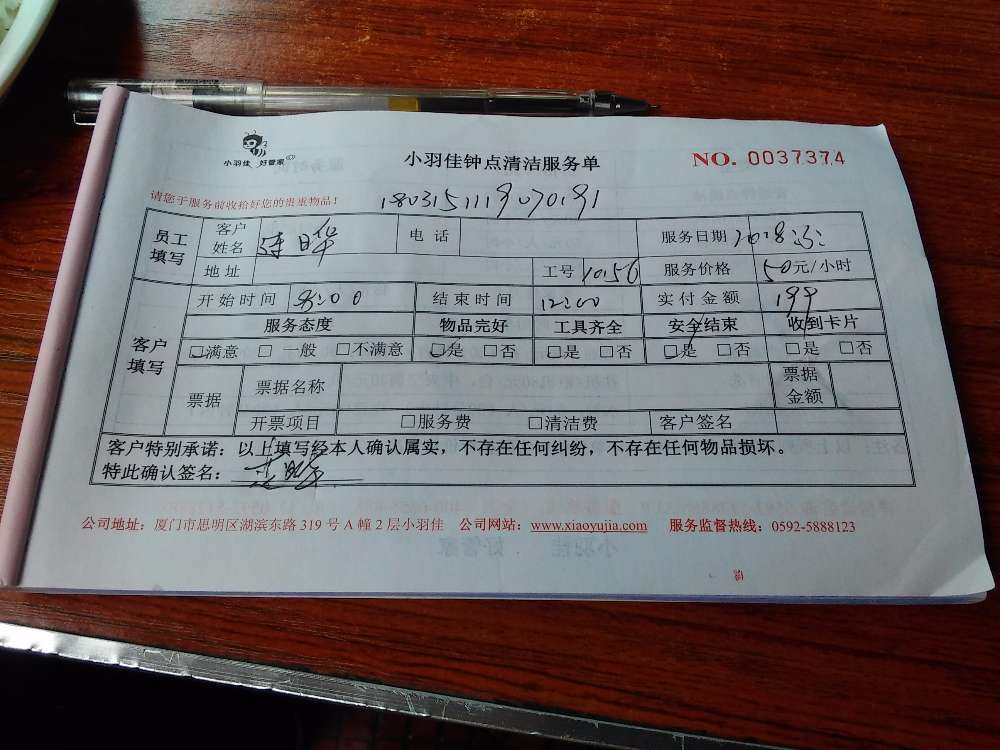 小羽佳 好管家
小羽佳钟点清洁服务单
NO. 0037374
请您于服务前收拾好您的贵重物品!
1803151119070191
员工填写 客户姓名 电话 服务日期
地址 工号 10156 服务价格 50元/小时
客户填写 开始时间 8:00 结束时间 12:00 实付金额 199
服务态度 物品完好 工具齐全 安全结束 收到卡片
□满意 □一般 □不满意 □是 □否 □是 □否 □是 □否 □是 □否
票据 票据名称 票据金额
开票项目 □服务费 □清洁费 客户签名
客户特别承诺:以上填写经本人确认属实,不存在任何纠纷,不存在任何物品损坏。
特此确认签名:
公司地址:厦门市思明区湖滨东路 319 号 A 幢 2 层小羽佳 公司网站:www.xiaoyujia.com 服务监督热线:0592-5888123